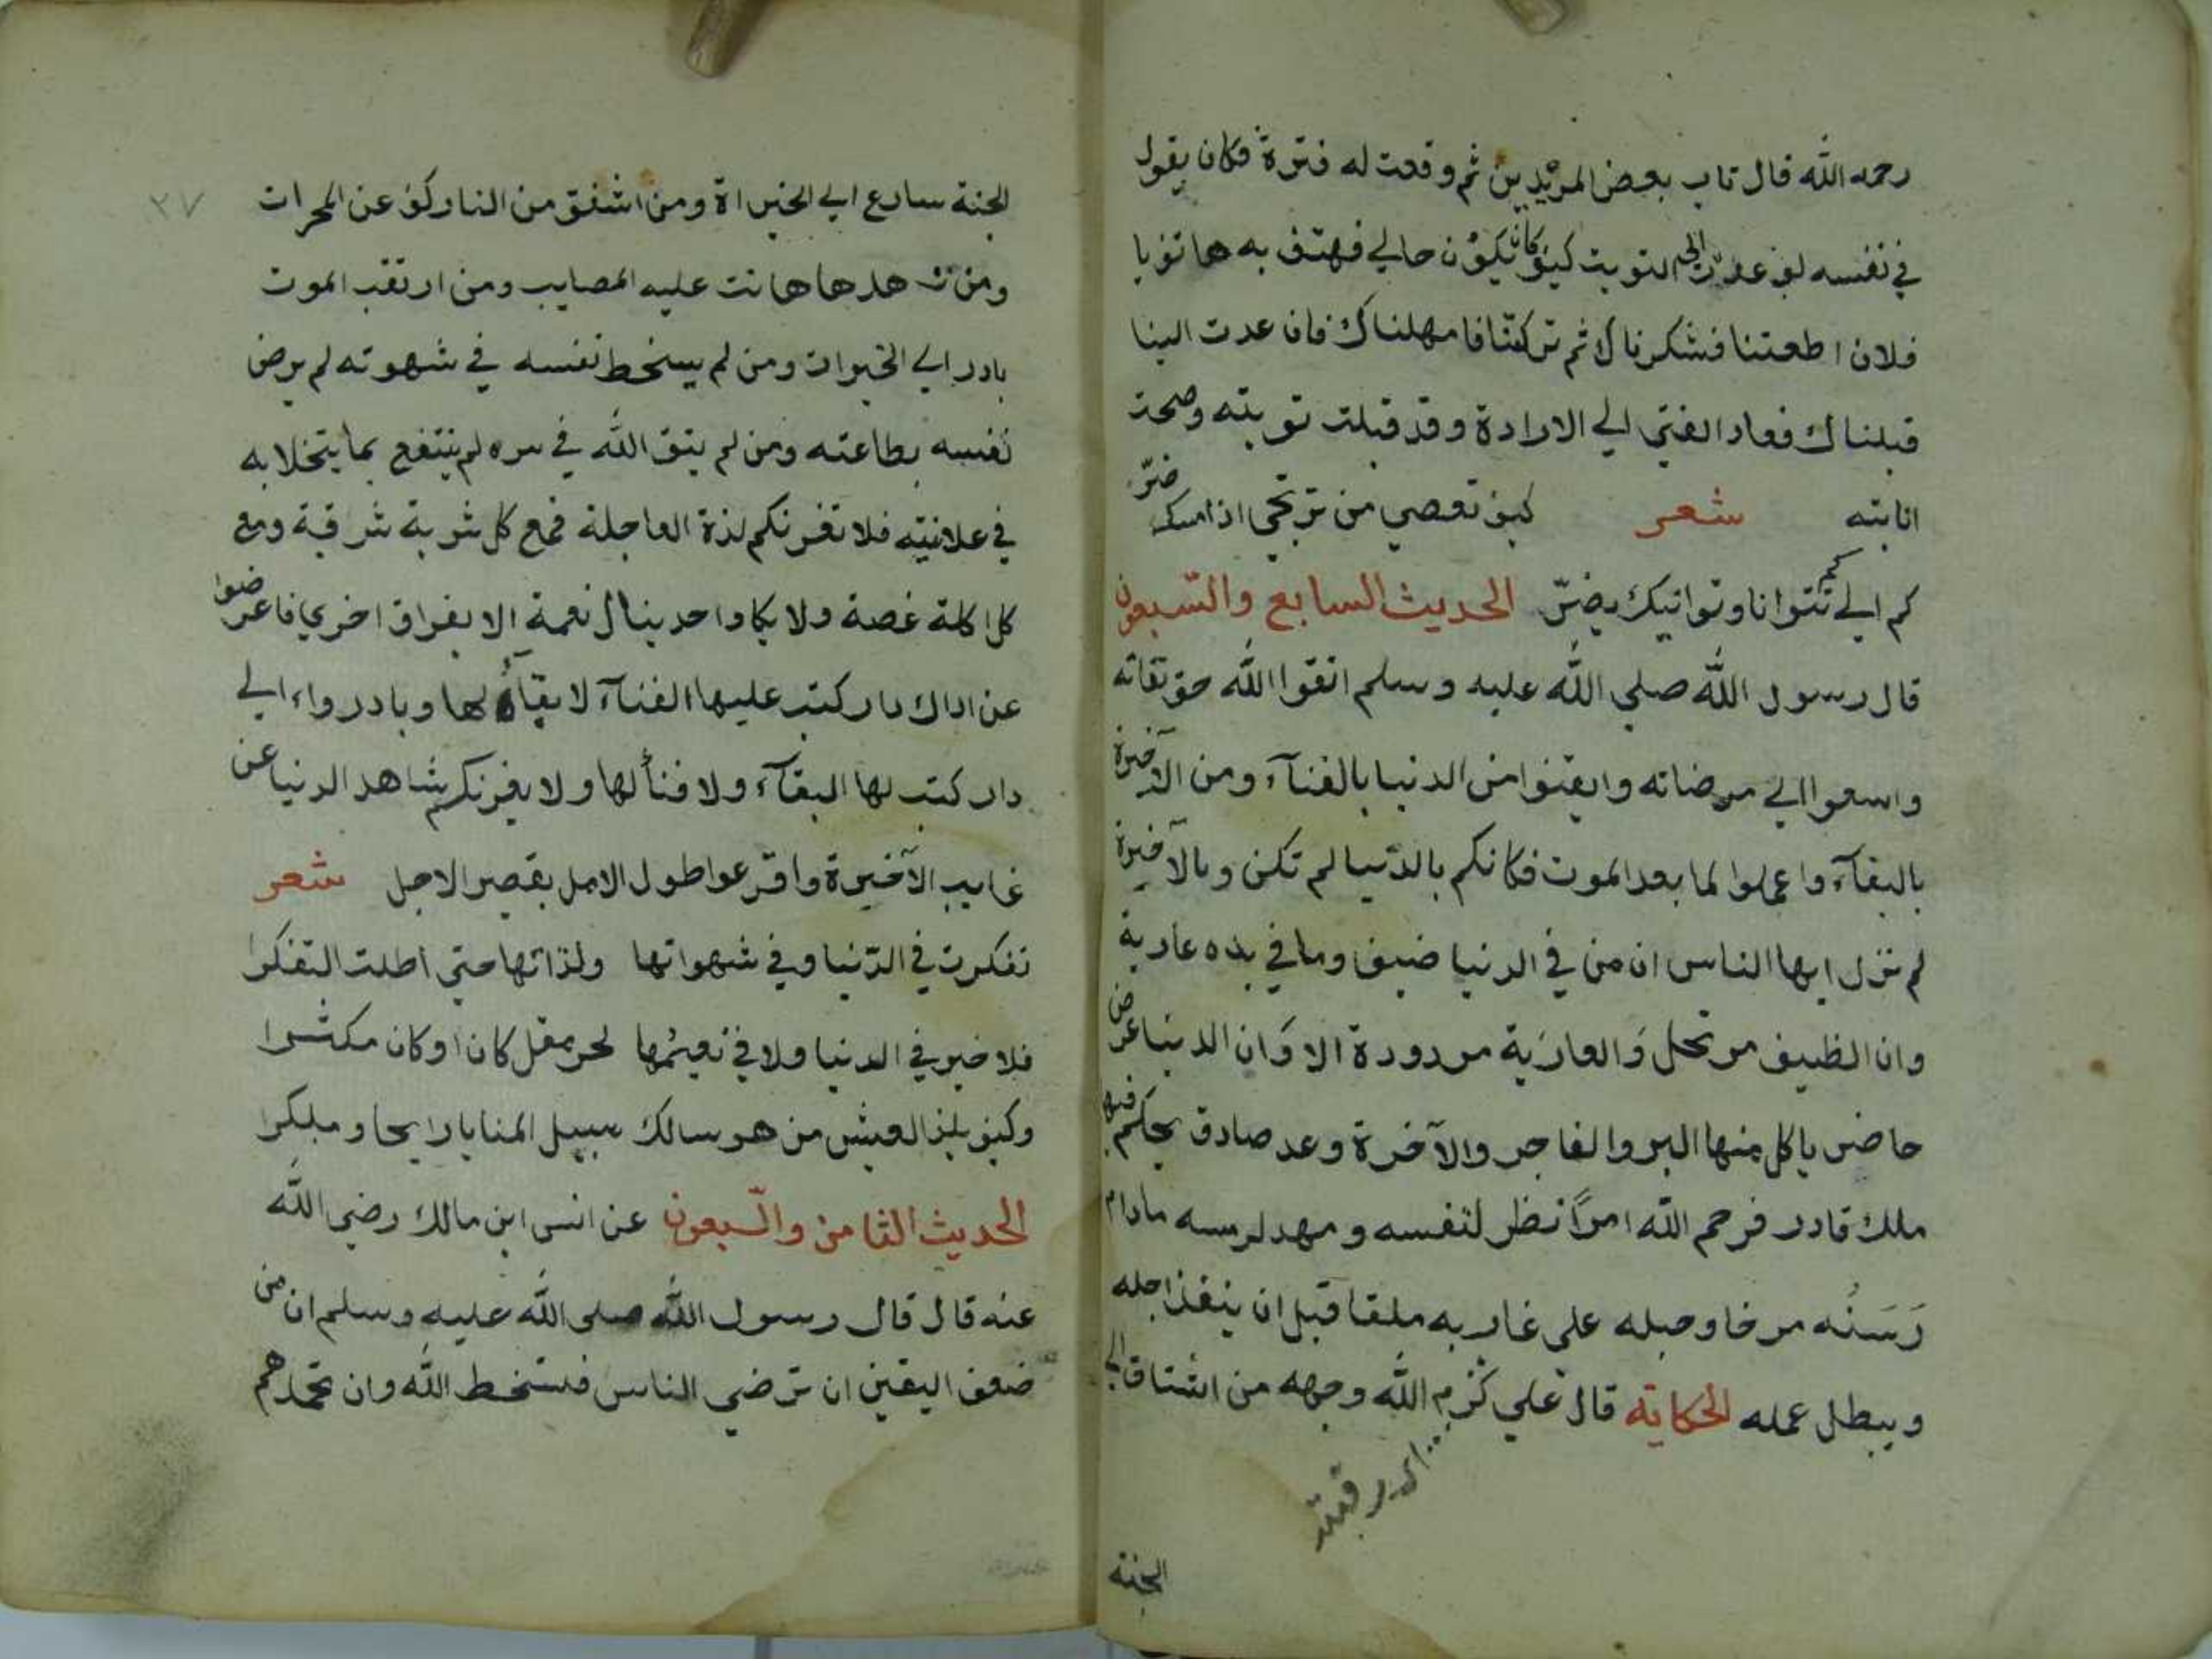 رحمه الله قال تاب بعض المريدين ثم وقعت له فترة فكان يقول
في نفسه لو عدت الى التوبت كيف كان يكون حالي فهتف به هاتف يا
فلان اطعتنا فشكرناك ثم تركتنا فامهلناك فان عدت الينا
قبلناك فعاد الفتى الي الارادة وقد قبلت توبته وصحت
انابته شعر كيف تعصي من ترتجي اذا مسك ضرّ
كم الي كم تتوانا وتوانيك يضرّ الحديث السابع والسّبعون
قال رسول الله صلي الله عليه وسلم اتقوا الله حق تقاته
واسعوا الي مرضاته وايقنوا من الدنيا بالفنآء ومن الآخرة
بالبقآء واعملوا لما بعد الموت فكانكم بالدّنيا لم تكن وبالآخرة
لم تزل ايها الناس ان من في الدنيا ضيف وما في يده عارية
وان الظيف مرتحل والعارية مردودة الا وان الدنيا عرض
حاضر ياكل منها البر والفاجر والآخرة وعد صادق يحكم فيها
ملك قادر فرحم الله امرأ نظر لنفسه ومهد لرمسه مادام
رَسَنُه مرخا وحبله على غاربه ملقا قبل ان ينفذ اجله
ويبطل عمله الحكاية قال علي كرم الله وجهه من اشتاق الى
الجنة
٢٧
الجنة سارع الي الخيراة ومن اشفق من النار كف عن المحرات
ومن شهدها هانت عليه المصايب ومن ارتقب الموت
بادر الي الخيرات ومن لم يسخط نفسه في شهوته لم يرض
نفسه بطاعته ومن لم يتق الله في سره لم ينتفع بما يتخلا به
في علانيته فلا تغرنكم لذة العاجلة فمع كل شربة شرقة ومع
كل اكلة غصة ولا يكاد احد ينال نعمة الا بفراق اخري فاعرضوا
عن اداك دار كتب عليها الفنآء لا بقآء لها وبادروا الي
دار كتب لها البقآء ولا فنأ لها ولا يغرنكم شاهد الدنيا عن
غايب الآخيرة واقرعوا طول الامل بقصر الاجل شعر
تفكرت في الدّنيا وفي شهواتها ولذاتها حتى اطلت التفكرا
فلا خير في الدنيا ولا في نعيمها لحر مقل كان او كان مكثرا
وكيف يلذ العيش من هو سالك سبيل المنايا رايحا ومبكرا
الحديث الثامن والسّبعون عن انس ابن مالك رضي الله
عنه قال قال رسول الله صلى الله عليه وسلم ان من
ضعف اليقين ان ترضي الناس فستخط الله وان تحمدهم